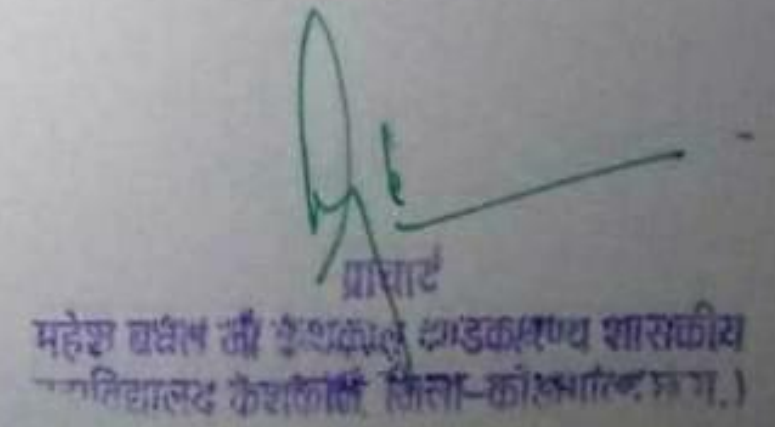 प्राचार्य
महेश बघेल माँ केशकाल दण्डकारण्य शासकीय
महाविद्यालय केशकाल, जिला-कोण्डागांव